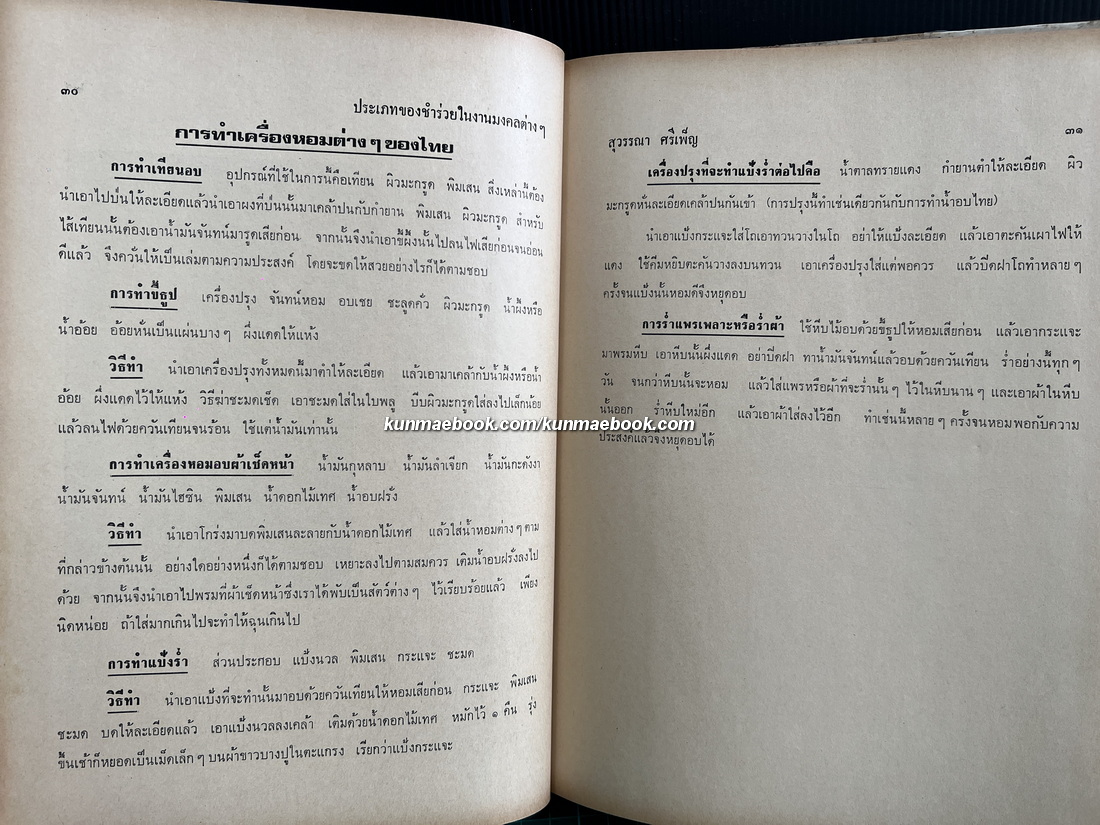 ๓๐
ประเภทของชำร่วยในงานมงคลต่าง ๆ
การทำเครื่องหอมต่าง ๆ ของไทย
การทำเทียนอบ อุปกรณ์ที่ใช้ในการนี้คือเทียน ผิวมะกรูด พิมเสน สิ่งเหล่านี้ต้อง
นำเอาไปบ่นให้ละเอียดแล้วนำเอาผงที่บ่นนั้นมาเคล้าปนกับกำยาน พิมเสน ผิวมะกรูด สำหรับ
ไส้เทียนนั้นต้องเอาน้ำมันจันทน์มารูดเสียก่อน จากนั้นจึงนำเอาขี้ผึ้งนั้นไปลนไฟเสียก่อนจนอ่อน
ดีแล้ว จึงควั่นให้เป็นเล่มตามความประสงค์ โดยจะขดให้สวยอย่างไรก็ได้ตามชอบ
การทำขี้ธูป เครื่องปรุง จันทน์หอม อบเชย ชะลูดคั่ว ผิวมะกรูด น้ำผึ้งหรือ
น้ำอ้อย อ้อยหั่นเป็นแผ่นบาง ๆ ผึ่งแดดให้แห้ง
วิธีทำ นำเอาเครื่องปรุงทั้งหมดนี้มาตำให้ละเอียด แล้วเอามาเคล้ากับน้ำผึ้งหรือน้ำ
อ้อย ผึ่งแดดไว้ให้แห้ง วิธีฆ่าชะมดเช็ด เอาชะมดใส่ในใบพลู บีบผิวมะกรูดใส่ลงไปเล็กน้อย
แล้วลนไฟด้วยควันเทียนจนร้อน ใช้แต่น้ำมันเท่านั้น
การทำเครื่องหอมอบผ้าเช็ดหน้า น้ำมันกุหลาบ น้ำมันลำเจียก น้ำมันกะดังงา
น้ำมันจันทน์ น้ำมันไฮซิน พิมเสน น้ำดอกไม้เทศ น้ำอบฝรั่ง
วิธีทำ นำเอาโกร่งมาบดพิมเสนละลายกับน้ำดอกไม้เทศ แล้วใส่น้ำหอมต่าง ๆ ตาม
ที่กล่าวข้างต้นนั้น อย่างใดอย่างหนึ่งก็ได้ตามชอบ เหยาะลงไปตามสมควร เติมน้ำอบฝรั่งลงไป
ด้วย จากนั้นจึงนำเอาไปพรมที่ผ้าเช็ดหน้าซึ่งเราได้พับเป็นสัตว์ต่าง ๆ ไว้เรียบร้อยแล้ว เพียง
นิดหน่อย ถ้าใส่มากเกินไปจะทำให้ฉุนเกินไป
การทำแป้งร่ำ ส่วนประกอบ แป้งนวล พิมเสน กระแจะ ชะมด
วิธีทำ นำเอาแป้งที่จะทำนั้นมาอบด้วยควันเทียนให้หอมเสียก่อน กระแจะ พิมเสน
ชะมด บดให้ละเอียดแล้ว เอาแป้งนวลลงเคล้า เติมด้วยน้ำดอกไม้เทศ หมักไว้ ๑ คืน รุ่ง
ขึ้นเช้าก็หยอดเป็นเม็ดเล็ก ๆ บนผ้าขาวบางปูในตะแกรง เรียกว่าแป้งกระแจะ
สุวรรณา ศรีเพ็ญ
๓๑
เครื่องปรุงที่จะทำแป้งร่ำต่อไปคือ น้ำตาลทรายแดง กำยานตำให้ละเอียด ผิว
มะกรูดหั่นละเอียดเคล้าปนกันเข้า (การปรุงนี้ทำเช่นเดียวกันกับการทำน้ำอบไทย)
นำเอาแป้งกระแจะใส่โถเอาทวนวางในโถ อย่าให้แป้งละเอียด แล้วเอาตะคันเผาไฟให้
แดง ใช้คีมหยิบตะคันวางลงบนทวน เอาเครื่องปรุงใส่แต่พอควร แล้วปิดฝาโถทำหลาย ๆ
ครั้งจนแป้งนั้นหอมดีจึงหยุดอบ
การร่ำแพรเพลาะหรือร่ำผ้า ใช้หีบไม้อบด้วยขี้ธูปให้หอมเสียก่อน แล้วเอากระแจะ
มาพรมหีบ เอาหีบนั้นผึ่งแดด อย่าปิดฝา ทาน้ำมันจันทน์แล้วอบด้วยควันเทียน ร่ำอย่างนี้ทุก ๆ
วัน จนกว่าหีบนั้นจะหอม แล้วใส่แพรหรือผ้าที่จะร่ำนั้น ๆ ไว้ในหีบนาน ๆ และเอาผ้าในหีบ
นั้นออก ร่ำหีบใหม่อีก แล้วเอาผ้าใส่ลงไว้อีก ทำเช่นนี้หลาย ๆ ครั้งจนหอมพอกับความ
ประสงค์แล้วจึงหยุดอบได้
kunmaebook.com/kunmaebook.com